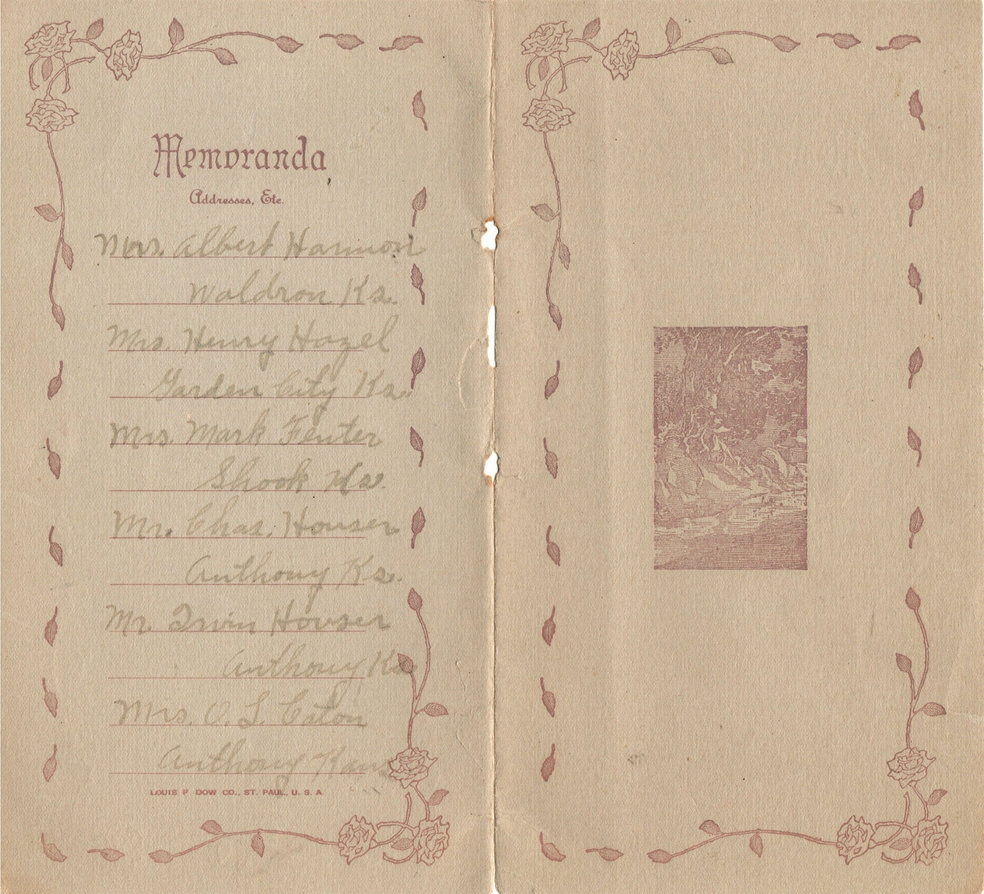 Memoranda
Addresses, Etc.
Mrs. Albert Harmon
Waldron Ks.
Mrs. Henry Hazel
Garden City Ks.
Mrs. Mark Fenter
Shook Ks.
Mr. Chas. Houser
Anthony Ks.
Mr. Irvin Houser
Anthony Ks
Mrs. O. L. Eaton
Anthony Kans
LOUIS F DOW CO., ST. PAUL, U. S. A